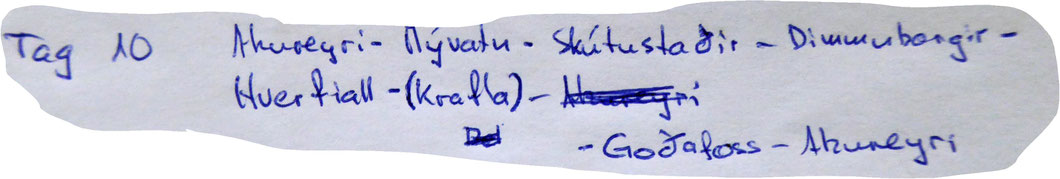 Tag 10 Akureyri - Mývatn - Skútustaðir - Dimmuborgir -
Hverfiall - (Krafla) - Akureyri
- Goðafoss - Akureyri